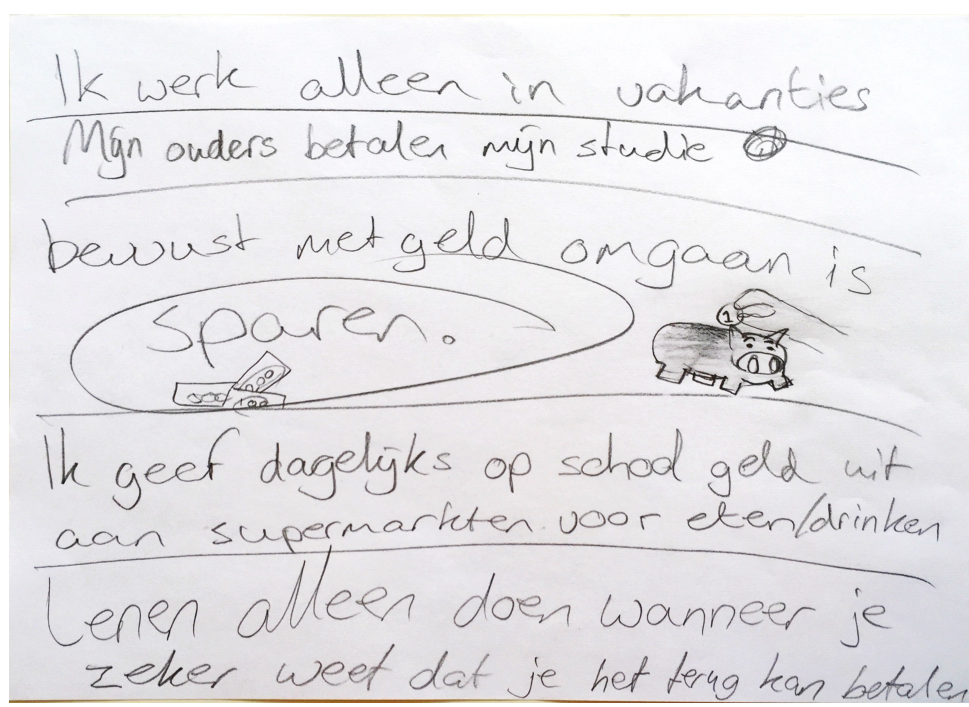 Ik werk alleen in vakanties
Mijn ouders betalen mijn studie
bewust met geld omgaan is
sparen.
1
Ik geef dagelijks op school geld uit
aan supermarkten voor eten/drinken
Lenen alleen doen wanneer je
zeker weet dat je het terug kan betalen